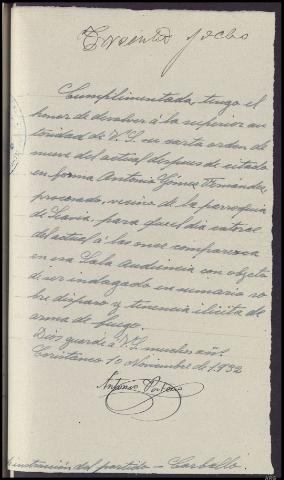 Treinta y ocho
Cumplimentada, tengo el
honor de devolver á la superior au
toridad de V.S. su carta orden de
nueve del actual despues de citado
en forma Antonio Gómez Fernandez
procesado, vecino de la parroquia
de para que el dia catorce
del actual á las once comparezca
en esa Sala Audiencia con objeto
de ser indagado en sumario so
bre disparo y tenencia ilicita de
arma de fuego.
Dios guarde á V.S. muchos añ.
Coristanco 10 Noviembre de 1932
Antonio
instrucción del partido - Carballo.